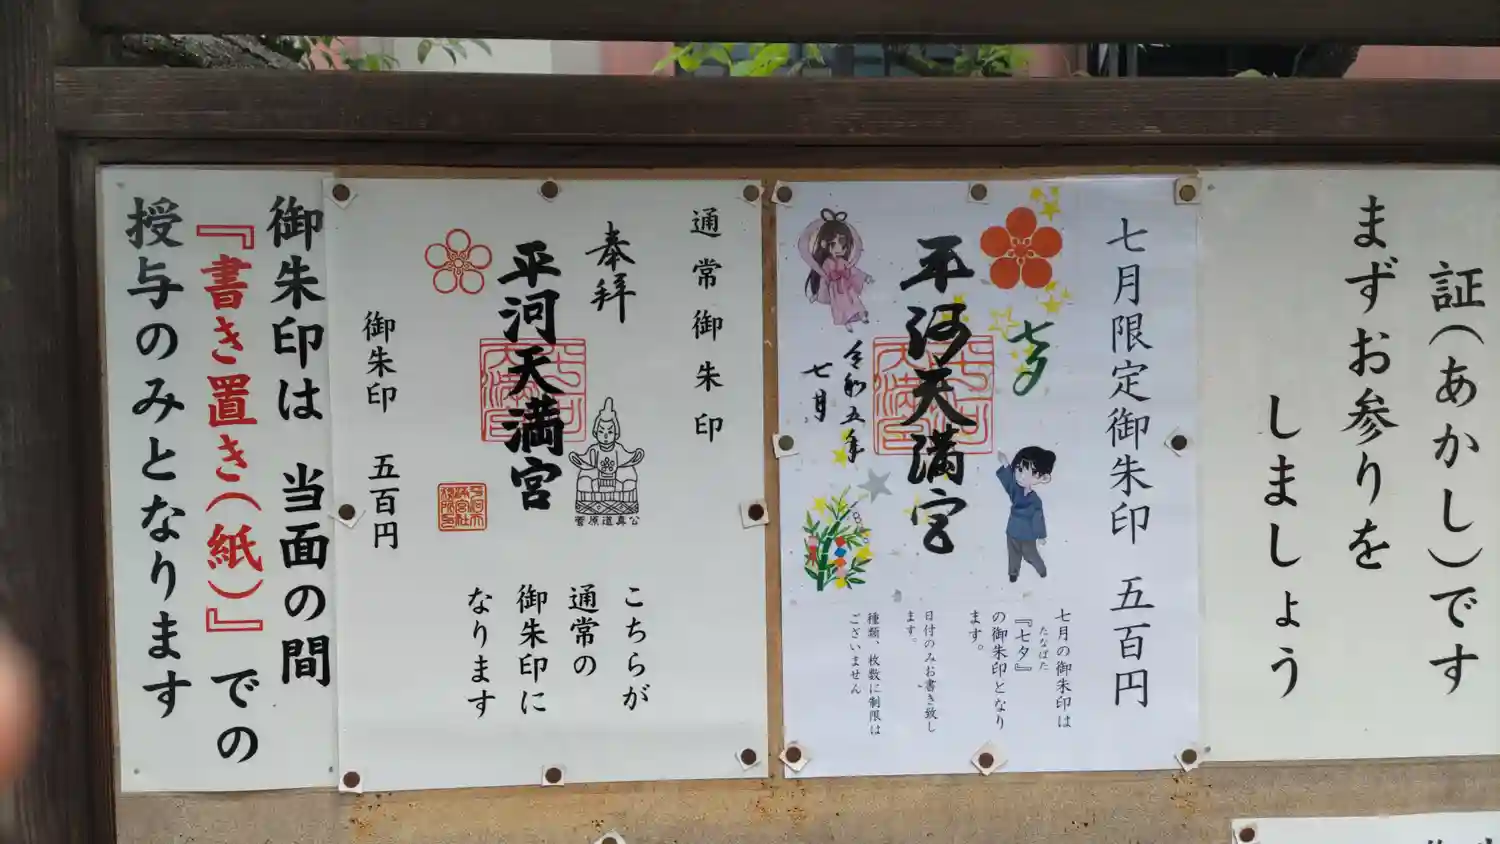 証(あかし)です
まずお参りを
しましょう
七月限定御朱印 五百円
七夕
平河天満宮
令和五年
七月
七月の御朱印は
『七夕』
たなばた
の御朱印となり
ます。
日付のみお書き致し
ます。
種類、枚数に制限は
ございません
通常御朱印
奉拝
平河天満宮
菅原道真公
御朱印 五百円
こちらが
通常の
御朱印に
なります
御朱印は 当面の間
『書き置き(紙)』での
授与のみとなります